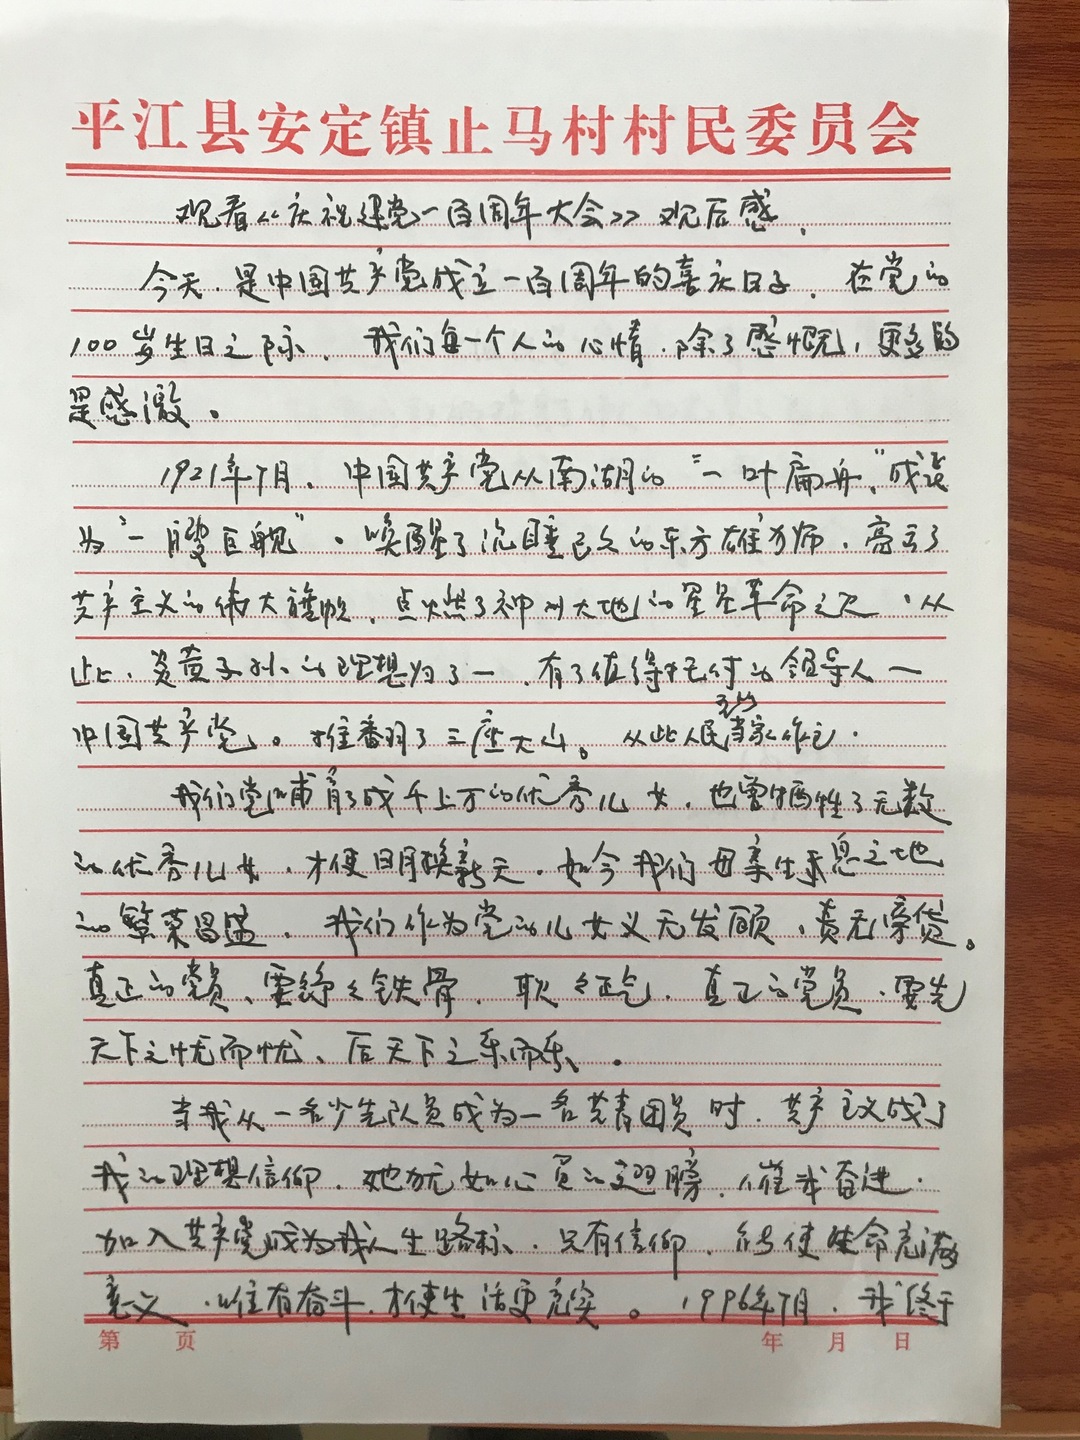 平江县安定镇止马村村民委员会
观看《庆祝建党一百周年大会》观后感.
今天.是中国共产党成立一百周年的喜庆日子.在党的
100岁生日之际.我们每一个人的心情.除了感慨,更多的
是感激。
1921年7月、中国共产党从南湖的"一叶扁舟"成长
为"一艘巨舰"。唤醒了沉睡已久的东方雄狮.亮亏了
共产主义的伟大旗帜.点燃了神州大地的星星革命之火.从
此、炎黄子孙的理想归了一.有了值得托付的领导人一
中国共产党。推翻了三座大山。从此人民当家作主.
我们党哺育了成千上万的优秀儿女.也曾牺牲了无数
的优秀儿女.才使日月换新天.如今我们母亲生息之地
的繁荣昌盛.我们作为党的儿女义无反顾、责无旁贷。
真正的党员、要铮々铁骨.耿々正气.真正的党员.要先
天下之忧而忧、后天下之乐而乐。
当我从一名少先队员成为一名共青团员时.共产主义成了
我的理想信仰.她犹如心灵的翅膀.催我奋进.
加入共产党成为我人生路标.只有信仰.能使生命充满
意义.唯有奋斗.才使生活更充实。1996年7月.我终于
第 页 年 月 日